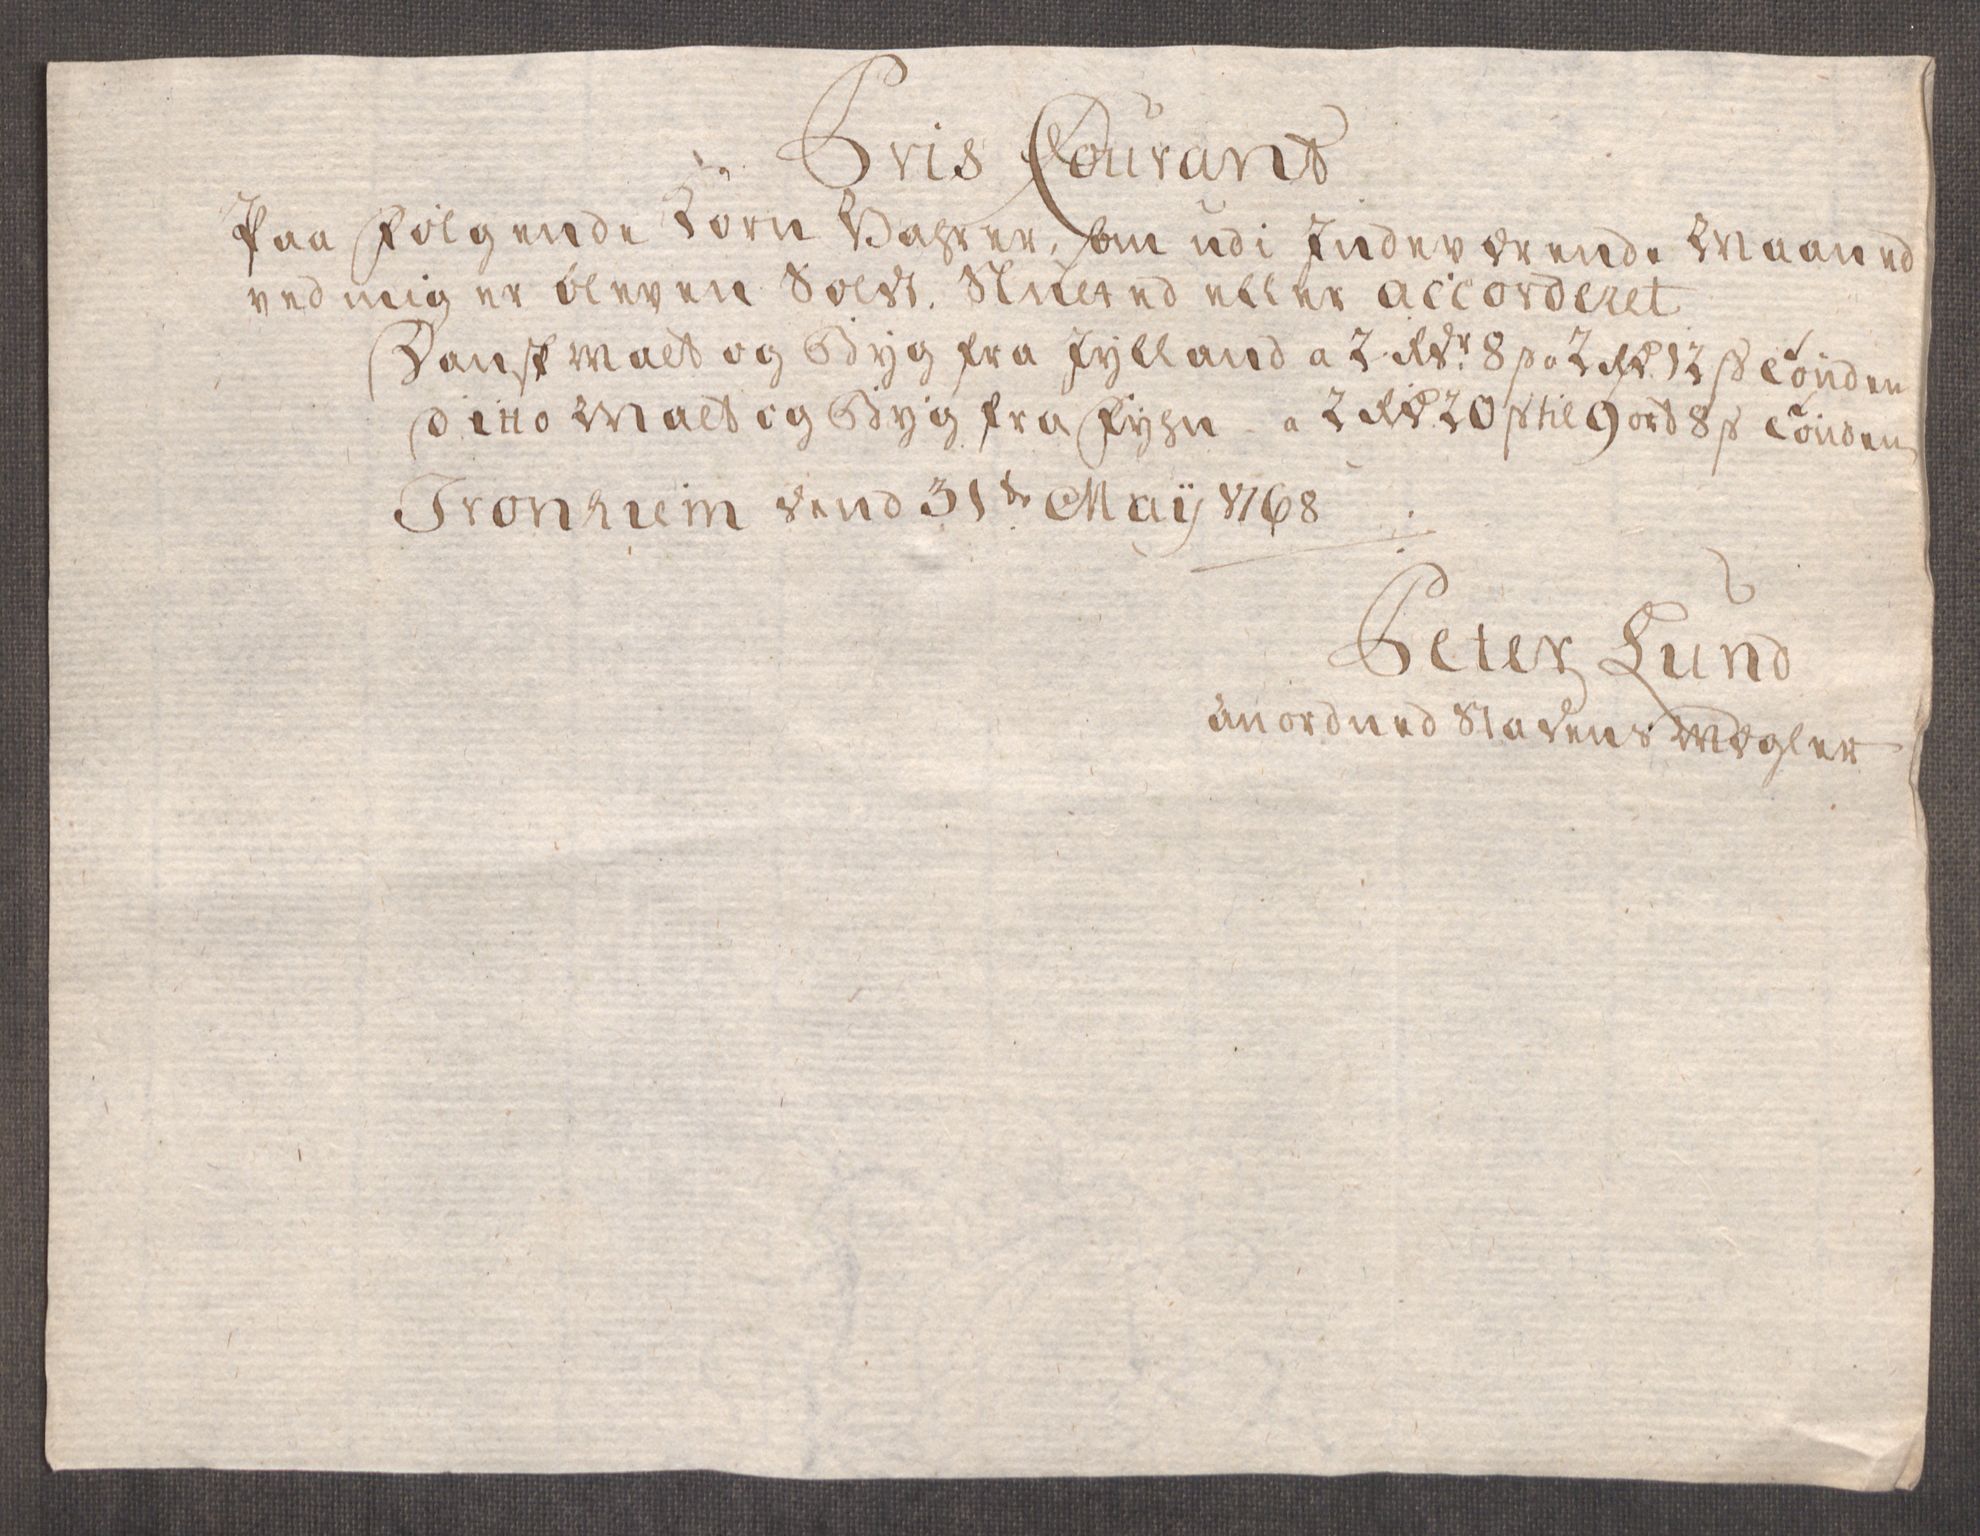 Pris Courant
Paa Følgende Korn Vahrer, som udi Indeværende Maaned
ved mig er bleven Soldt. Slutted eller accorderet
Dansk Malt og Byg fra Jylland a 2 Rdr. 8 s a 2 Rd. 12 s Tønden
ditto Malt og Byg fra Fyhn a 2 Rd. 20 s til 9 ort 8 s Tønden
Tronhiem dend 31te Maÿ 1768
Peter Lund
anordned Stadens Mægler